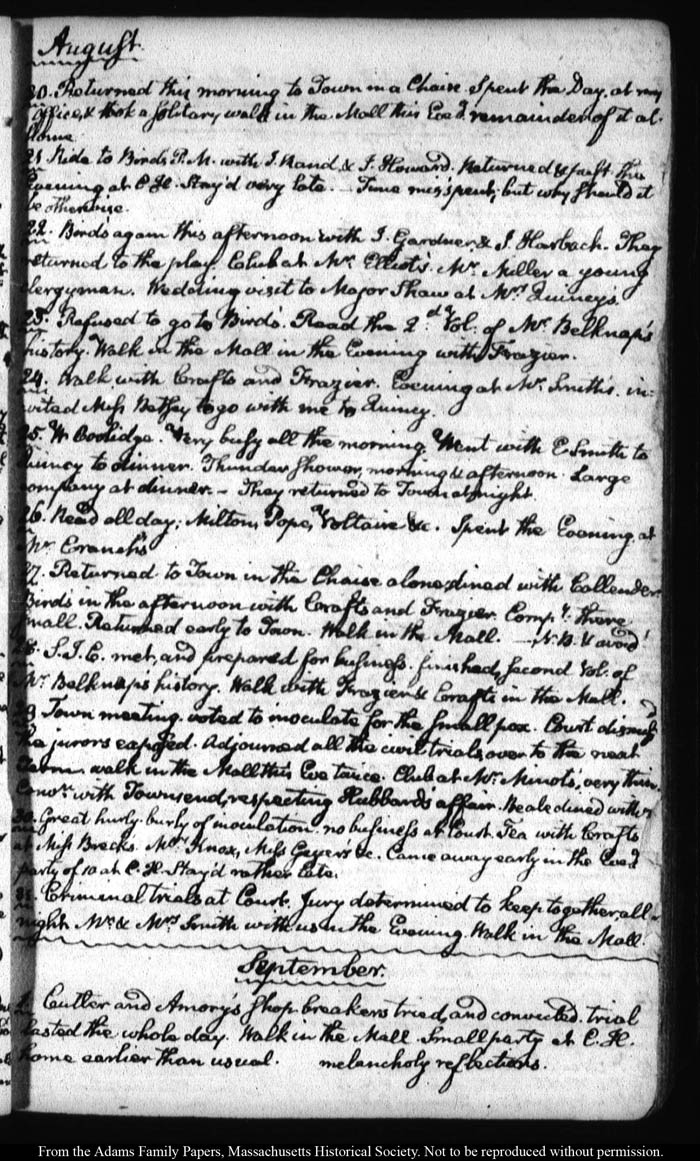 August.
20. Returned this morning to Town in a Chaise. Spent the Day, at my
office, & took a solitary walk in the Mall this Eve.g remainder of it at
home.
21 Ride to Birds P.M. with J. Rand & J. Howard. Returned & past the
Evening at C.H. Stay'd very late. — Time misspent; but why should it
be otherwise.
22. Bird's again this afternoon with J. Gardner & J. Harbach. They
returned to the play. Club at Mr. Elliot's. Mr. Miller a young
clergyman. Wedding visit to Major Shaw at Mrs Quincy's.
23. Refused to go to Bird's. Read the 2.d Vol. of Mr. Belknap's
history. Walk in the Mall in the Evening with Frazier.
24. Walk with Crafts and Frazier. Evening at Mr. Smith's. in-
vited Miss Betsey to go with me to Quincy.
25. W. Coolidge. Very busy all the morning Went with E Smith to
Quincy to dinner. Thunder shower, morning & afternoon. Large
company at dinner. — They returned to Town at night.
26. Read all day; Milton, Pope, Voltaire &c. Spent the Evening, at
Mr. Cranch's
27. Returned to Town in the Chaise alone, dined with Callender
Bird's in the afternoon with Crafts and Frazier. Comp.y there
small. Returned early to Town. Walk in the Mall. — N.B. & avoid
28. S.J.C. met, and prepared for business. finished, second Vol: of
Mr. Belknap's history. Walk with Frazier & Crafts in the Mall.
29 Town meeting. voted to inoculate for the small pox. Court dismiss
the jurors exposed. Adjourned all the civil trials over to the next
term. walk in the Mall this Eve twice. Club at Mr. Minot's, very thin.
Conv.n with Townsend, respecting Hubbard's affair. Beale dined with
30. Great hurly-burly of inoculation. no business at Court. Tea with Crafts
at Miss Brecks. Mrs. Knox, Miss Geyer's &c. Came away early in the Eve.g
party of 10 at C.H. Stay'd rather late.
31. Criminal trials at Court. Jury determined to keep together, all
night Mr. & Mrs Smith with us in the Evening. Walk in the Mall.
September.
1. Cutler and Amory's shop-breakers tried, and convicted. trial
lasted the whole day. Walk in the Mall. Small party at C.H.
home earlier than usual. melancholy reflections.
From the Adams Family Papers, Massachusetts Historical Society. Not to be reproduced without permission.